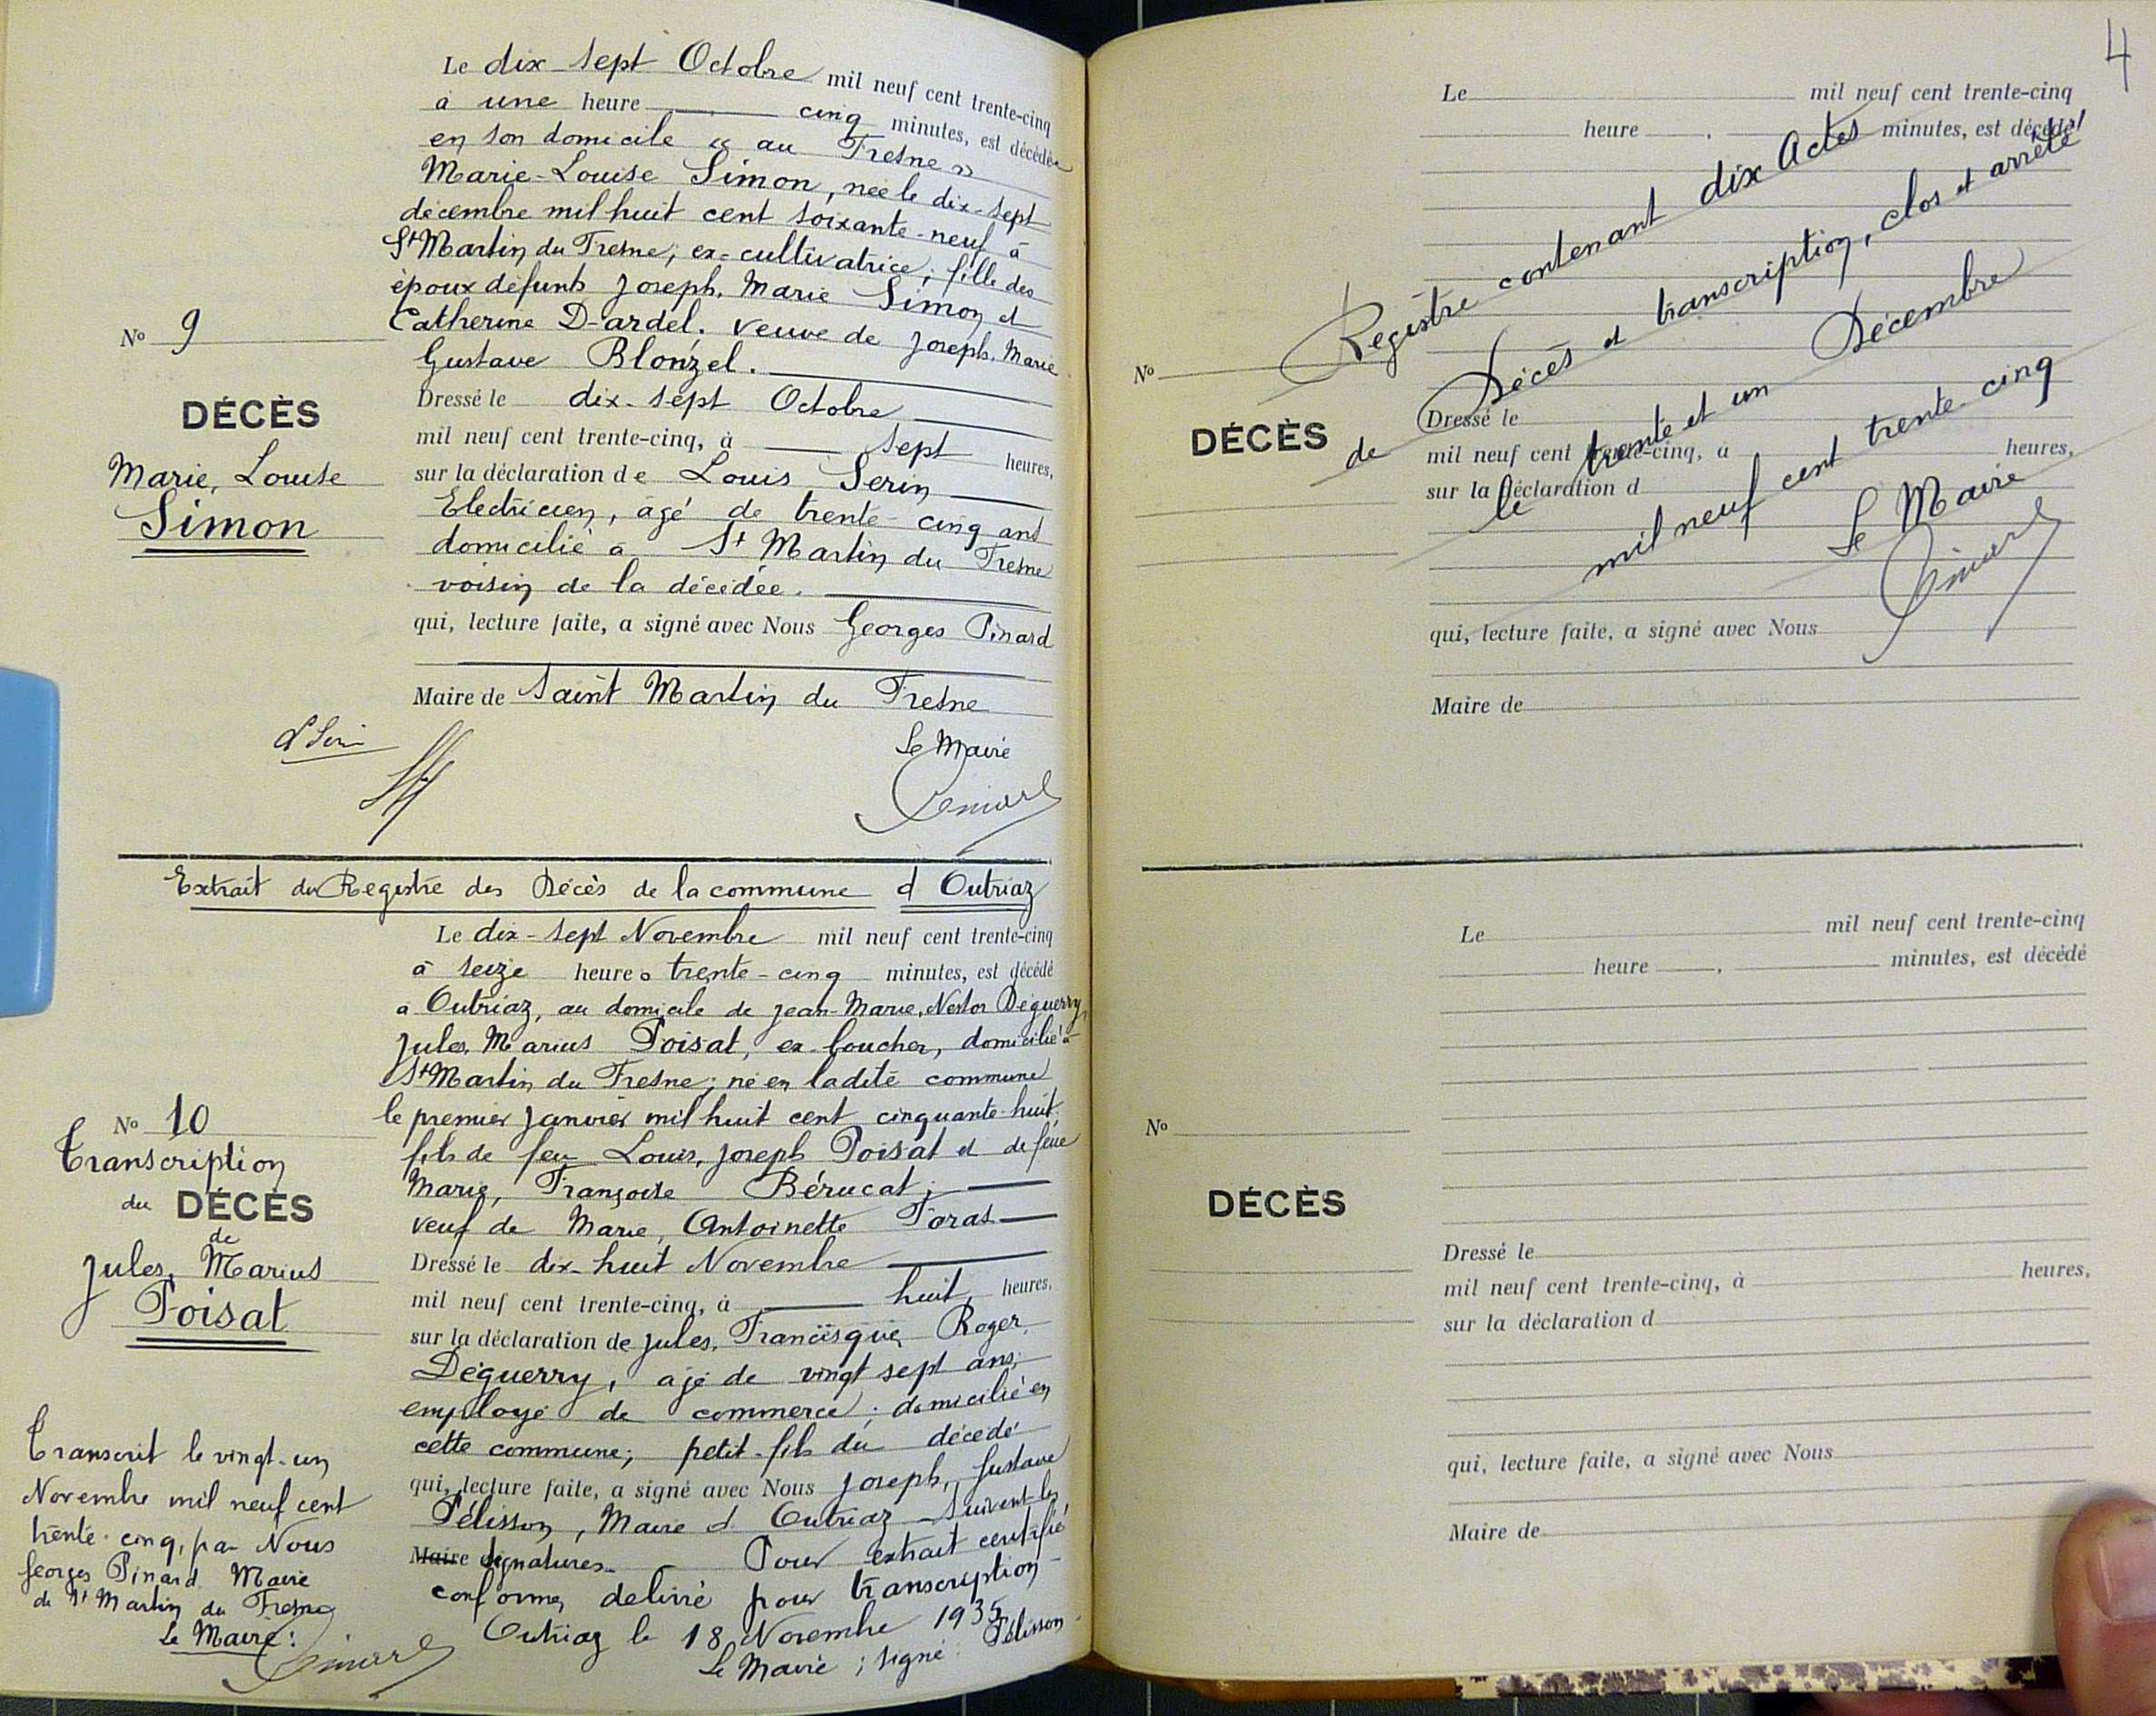 Le dix-sept Octobre mil neuf cent trente-cinq
à une heure cinq minutes, est décédée
en son domicile « au Fresne »
Marie-Louise Simon, née le dix-sept
décembre mil huit cent soixante-neuf à
St Martin du Fresne, ex-cultivatrice; fille des
époux défunts Joseph, Marie Simon et
Catherine D-ardel. veuve de Joseph, Marie
Gustave Blonzel.
No 9
DÉCÈS
Marie, Louise
Simon
Dressé le dix-sept Octobre
mil neuf cent trente-cinq, à sept heures,
sur la déclaration de Louis Serin
Electricien, agé de trente-cinq ans
domicilié à St Martin du Fresne
voisin de la décédée.
qui, lecture faite, a signé avec Nous Georges Pinard
Maire de Saint Martin du Fresne
L Serin
Le Maire
Pinard
Extrait du Registre des Décès de la commune d'Outriaz
Le dix-sept Novembre mil neuf cent trente-cinq
à seize heures trente-cinq minutes, est décédé
à Outriaz, au domicile de Jean-Marie, Nestor Déguerry,
Jules, Marius Poisat, ex-boucher, domicilié à
St Martin du Fresne; né en ladite commune
le premier Janvier mil huit cent cinquante-huit
fils de feu Louis, Joseph Poisat et de feue
Marie, Françoise Bérucat;
veuf de Marie, Antoinette Foras
No 10
Transcription
du DÉCÈS
de
Jules, Marius
Poisat
Dressé le dix-huit Novembre
mil neuf cent trente-cinq, à huit heures,
sur la déclaration de Jules, Francisque, Roger
Déguerry, agé de vingt sept ans;
employé de commerce; domicilié en
cette commune; petit-fils du décédé
qui, lecture faite, a signé avec Nous Joseph, Gustave
Pélisson, Maire d'Outriaz - Suivent les
Maire signatures - Pour extrait certifié
conforme, délivré pour transcription
Outriaz le 18 Novembre 1935
Le Maire; signé: Pélisson
Transcrit le vingt-un
Novembre mil neuf cent
trente-cinq, par Nous
Georges Pinard Maire
de St Martin du Fresne
Le Maire:
Pinard
4
Le mil neuf cent trente-cinq
heure , minutes, est décédé
Registre contenant dix Actes
de Décès et transcription, clos et arrêté
le trente et un Décembre
mil neuf cent trente-cinq
Le Maire
Pinard
No
DÉCÈS
Dressé le
mil neuf cent trente-cinq, à heures,
sur la déclaration d
qui, lecture faite, a signé avec Nous
Maire de
Le mil neuf cent trente-cinq
heure , minutes, est décédé
No
DÉCÈS
Dressé le
mil neuf cent trente-cinq, à heures,
sur la déclaration d
qui, lecture faite, a signé avec Nous
Maire de